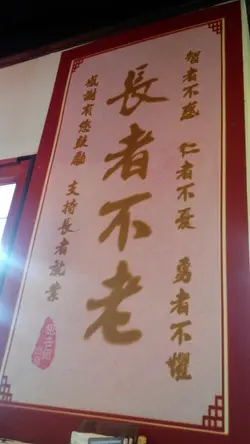 智者不惑 仁者不憂 勇者不懼
長者不老
感謝有您鼓勵 支持長者就業